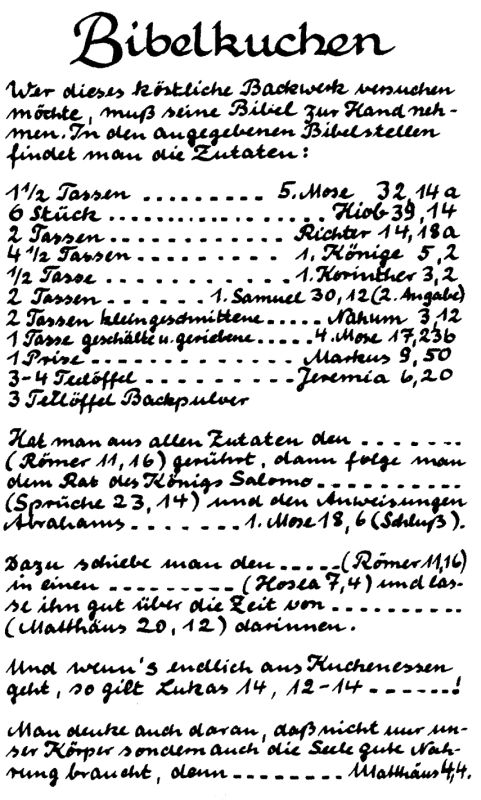 Bibelkuchen
Wer dieses köstliche Backwerk versuchen
möchte, muß seine Bibel zur Hand neh-
men. In den angegebenen Bibelstellen
findet man die Zutaten:
1 1/2 Tassen .......... 5. Mose 32,14a
6 Stück .................. Hiob 39,14
2 Tassen ............. Richter 14,18a
4 1/2 Tassen .......... 1. Könige 5,2
1/2 Tasse .............. 1. Korinther 3,2
2 Tassen ....... 1. Samuel 30,12 (2. Angabe)
2 Tassen kleingeschnittene ..... Nahum 3,12
1 Tasse geschälte u. geriebene ..... 4. Mose 17,23b
1 Prise ............... Markus 9,50
3-4 Teelöffel .......... Jeremia 6,20
3 Teelöffel Backpulver
Hat man aus allen Zutaten den .......
(Römer 11,16) gerührt, dann folge man
dem Rat des Königs Salomo ..........
(Sprüche 23,14) und den Anweisungen
Abrahams ........ 1. Mose 18,6 (Schluß).
Dazu schiebe man den ..... (Römer 11,16)
in einen ......... (Hosea 7,4) und las-
se ihn gut über die Zeit von .........
(Matthäus 20,12) darinnen.
Und wenn's endlich ans Kuchenessen
geht, so gilt Lukas 14, 12-14 ......!
Man denke auch daran, daß nicht nur un-
ser Körper sondern auch die Seele gute Nah-
rung braucht, denn ........ Matthäus 4,4.